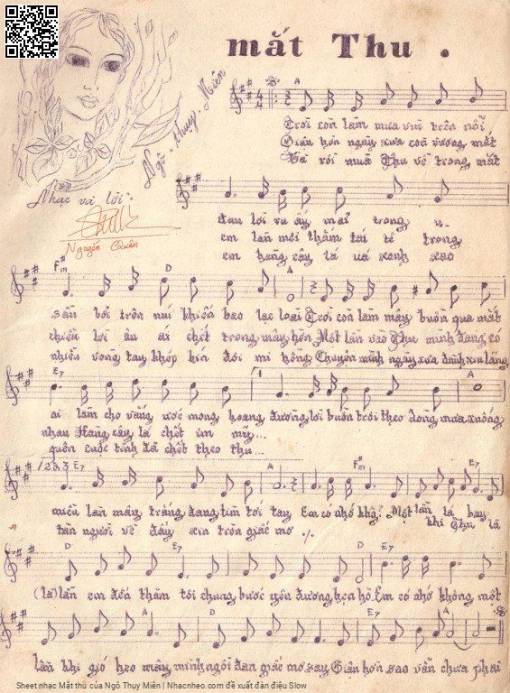 mắt Thu .
Ngô . Thụy . Miên
Nhạc và lời :
Nguyễn Quân
A
Trời còn làm mưa vui trên nỗi
Giận hờn ngày xưa còn vương mắt
Và rồi mùa Thu về trong mắt
đau lời ru ấy mãi trong u.
em lần môi thắm tái tê trong
em hàng cây lá úa xanh xao
F#m D A
sầu bởi trên núi khiến bao lạc loài Trời còn làm mây buồn qua mắt
chiều lời ân ái chết trong mây hồn Một lần vào Thu mình đang có
nhiều vòng tay khép kín đôi mi hồng Chuyện mình ngày xưa đành xin lãng
E7 A
ai làm cho vàng ước mong hoang đường, lời buồn trôi theo dòng mưa xuống
nhau Hàng cây lá chết ... mỹ...
quên cuộc tình đã chết theo thu...
1 2 & 3 E7 A F#m E7
miệu làn mây trắng đang tìm tới tay Em có nhớ không? Một lần lá bay
khi Thu là
tàn người về đấy xin tròn giấc mơ ./.
D E7 A D E7
(là) lần em đến thăm tôi chung bước yêu đương, hẹn hò. Em có nhớ không một
A D E7 A
lần khi gió heo mây mình ngồi đan giấc mơ say Giận hờn sao vẫn chưa phai
Sheet nhạc Mắt thu của Ngô Thụy Miên | Nhacnheo.com đề xuất đàn điệu Slow